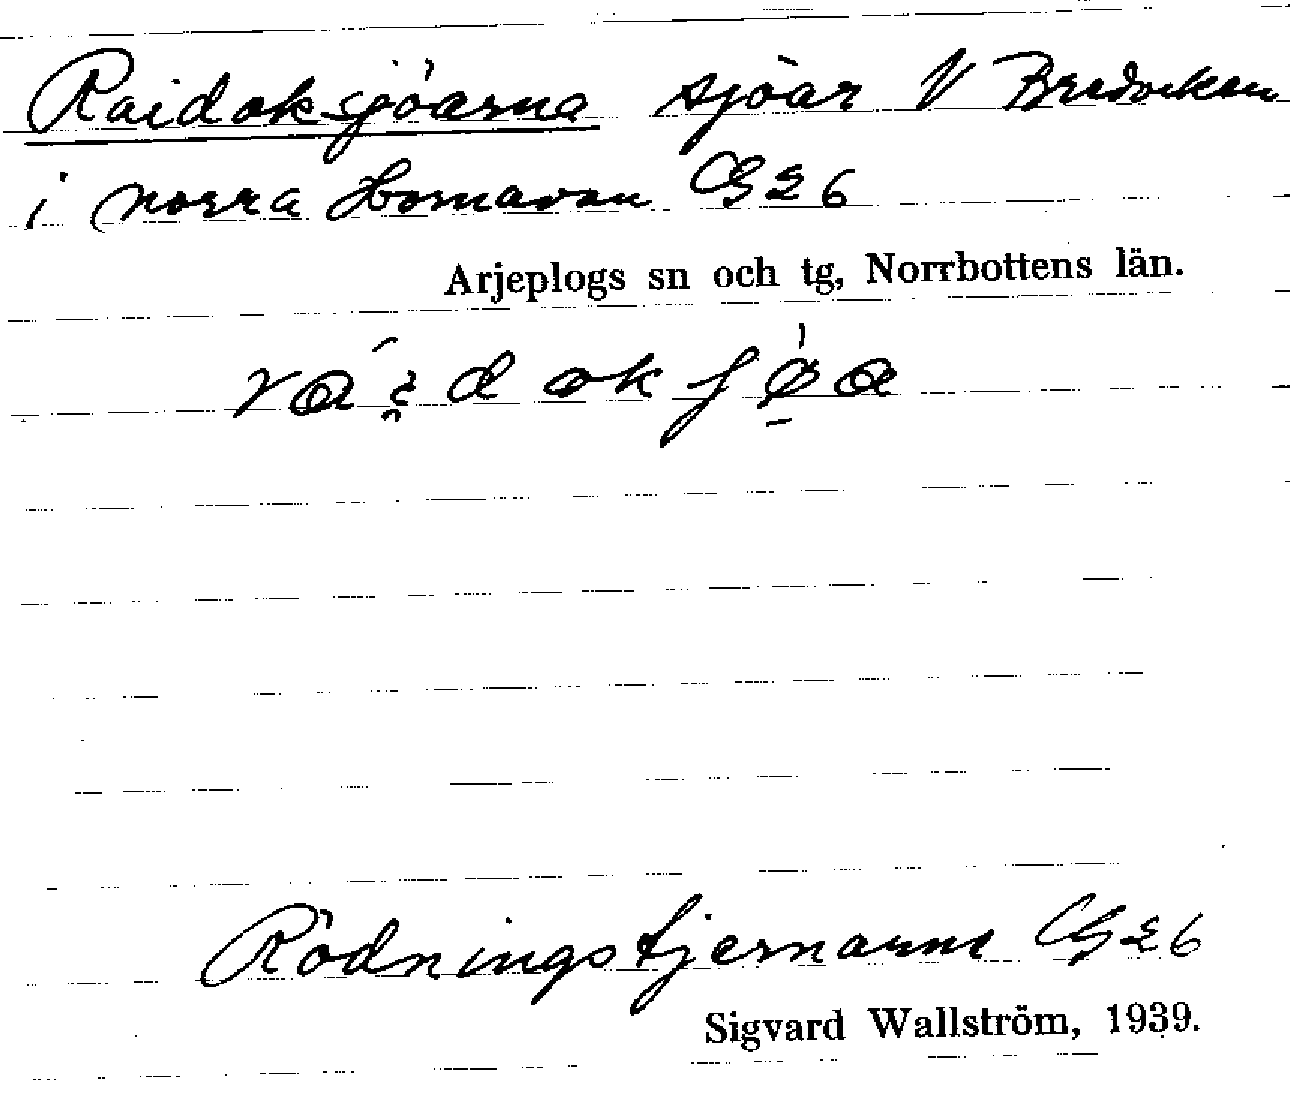 Raidoksjöarna sjöar V Bredviken
i norra Hornavan GS 26
Arjeplogs sn och tg, Norrbottens län.
Rödningstjernarne GS 26
Sigvard Wallström, 1939.